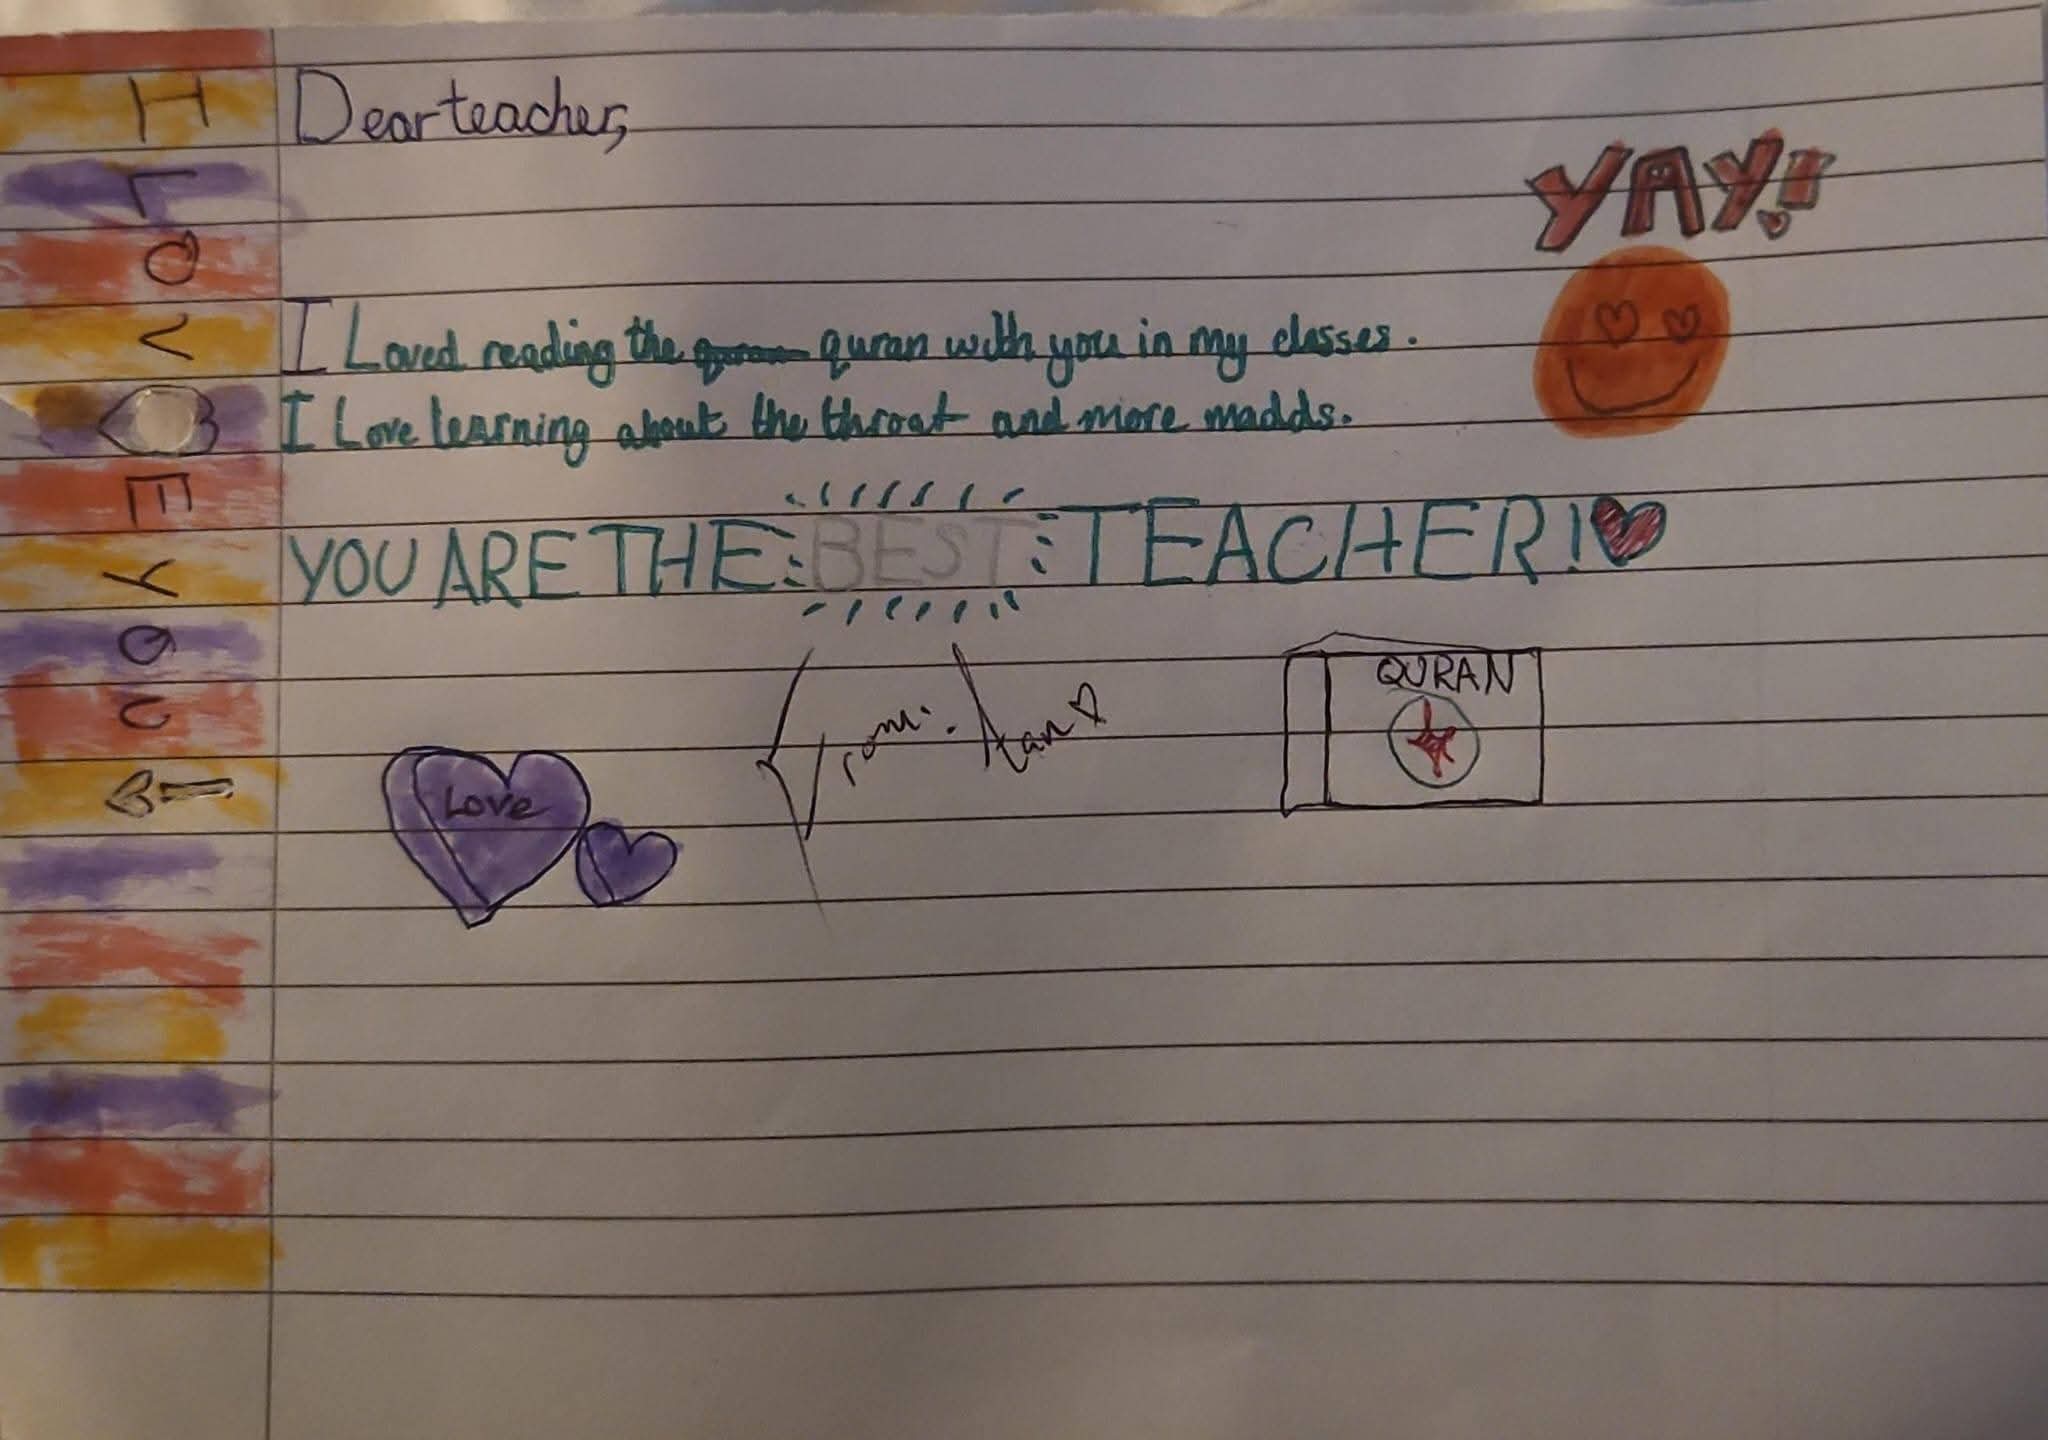 I LOVE YOU!
Dear teacher,
YAY!
I Loved reading the quran with you in my classes.
I Love learning about the throat and more madds.
YOU ARE THE BEST TEACHER!
From:
QURAN
Love